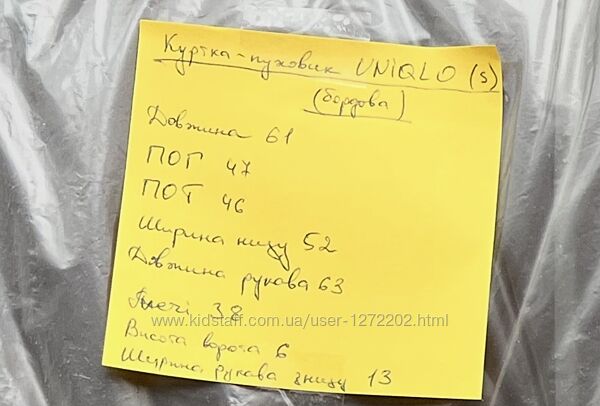 Куртка-пуховик UNIQLO (s)
(бордова)
Довжина 61
ПОГ 47
ПОТ 46
Ширина низу 52
Довжина рукава 63
Плечі 38
www.kidstaff.com.ua/user-1272202.html
Висота ворота 6
Ширина рукава внизу 13